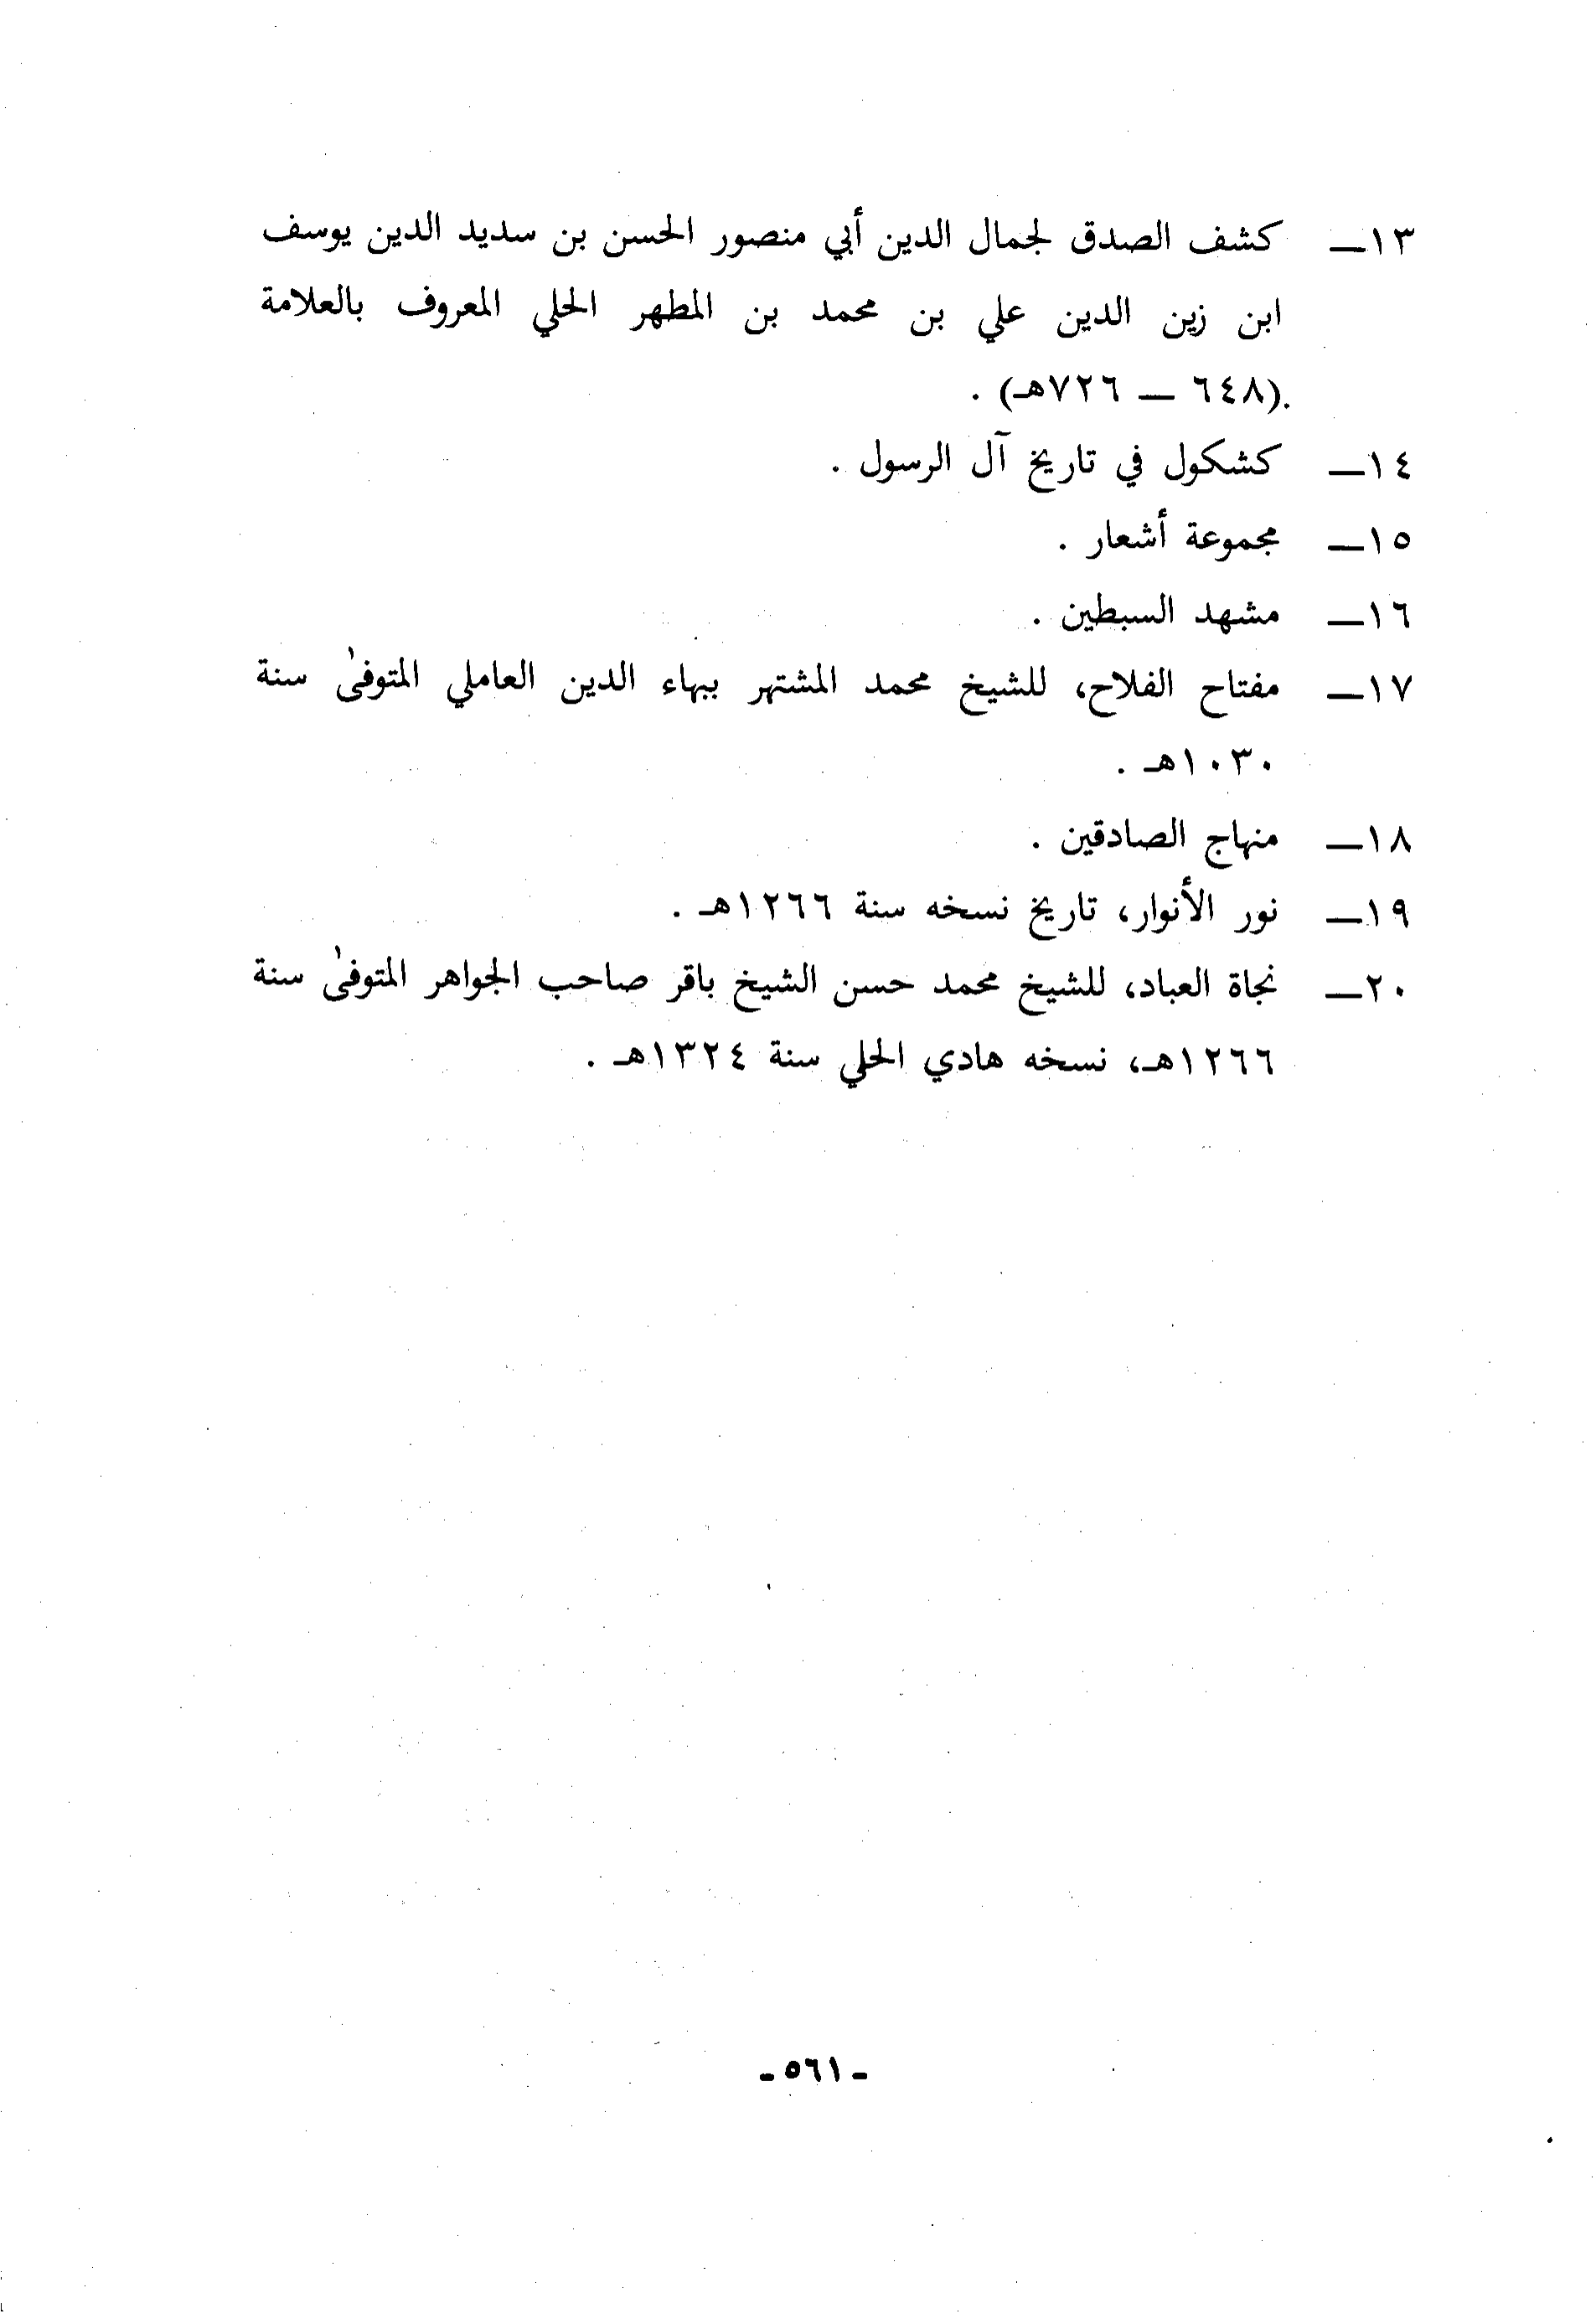 ١٣ــ كشف الصدق لجمال الدين أبي منصور الحسن بن سديد الدين يوسف
ابن زين الدين علي بن محمد بن المطهر الحلي المعروف بالعلامة
.(٦٤٨ ــ ٧٢٦هـ) .
١٤ــ كشكول في تاريخ آل الرسول .
١٥ــ مجموعة أشعار .
١٦ــ مشهد السبطين .
١٧ــ مفتاح الفلاح، للشيخ محمد المشتهر ببهاء الدين العاملي المتوفىٰ سنة
١٠٣٠هـ .
١٨ــ منهاج الصادقين .
١٩ــ نور الأنوار، تاريخ نسخه سنة ١٢٦٦هـ .
٢٠ــ نجاة العباد، للشيخ محمد حسن الشيخ باقر صاحب الجواهر المتوفىٰ سنة
١٢٦٦هـ، نسخه هادي الحلي سنة ١٣٢٤هـ .
- ٥٦١ -